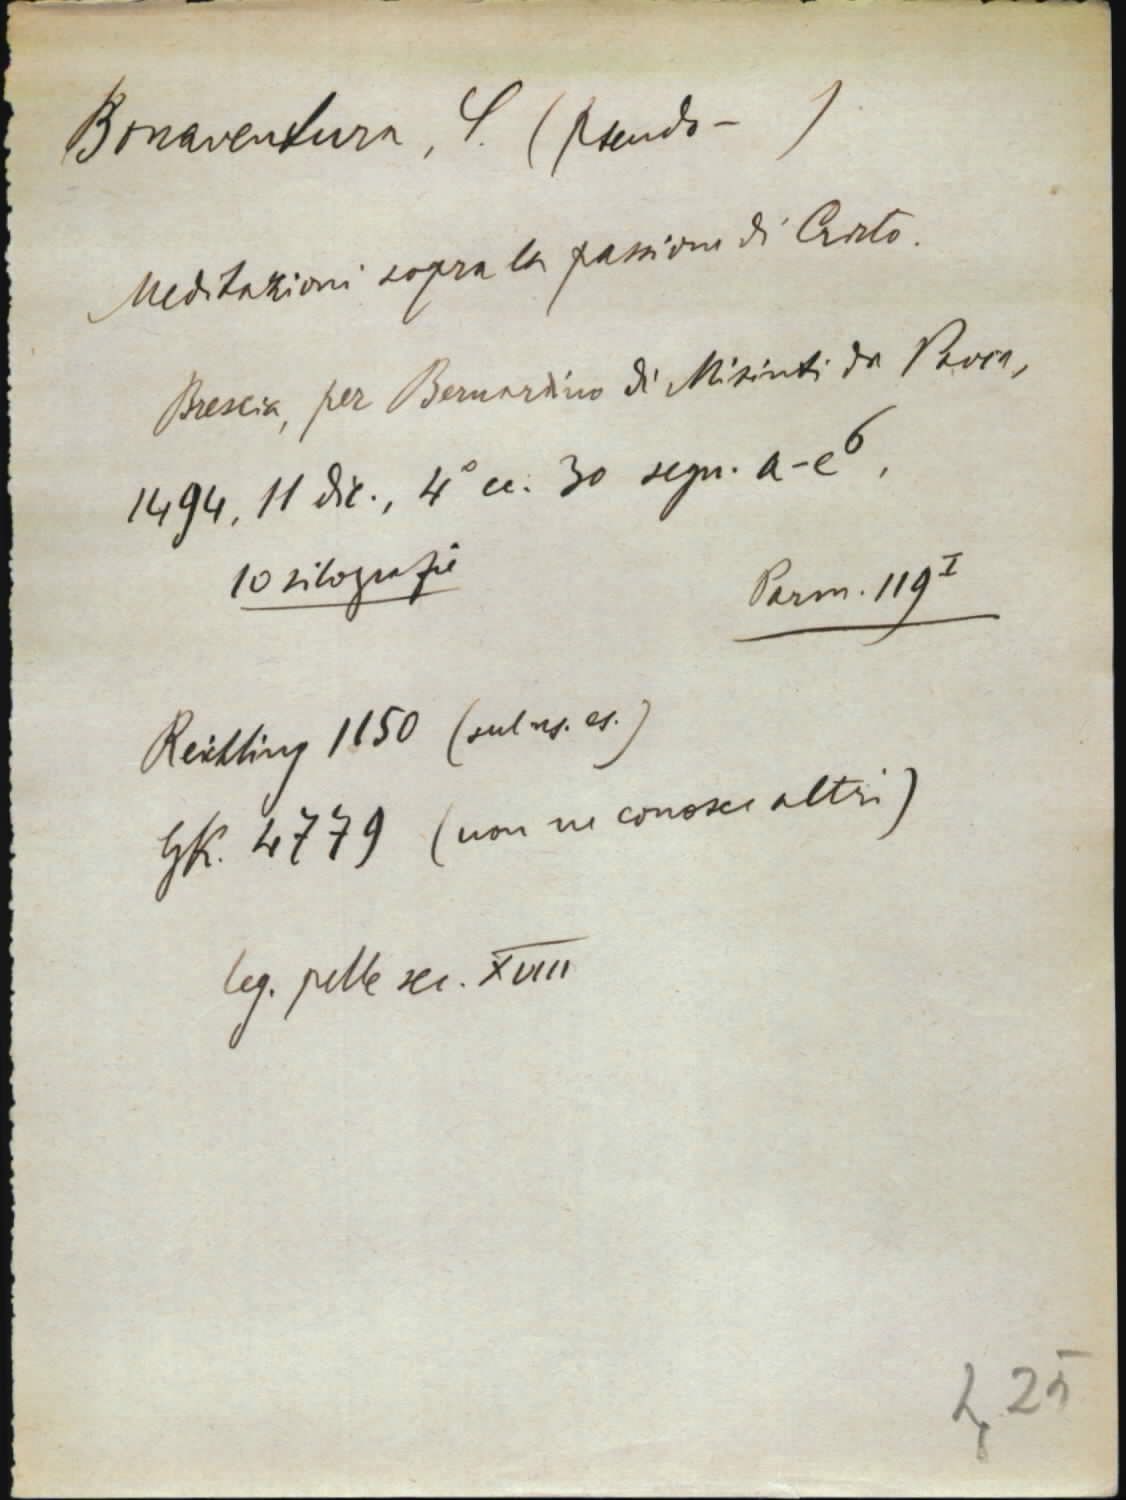 Bonaventura, S. (pseudo- )
Meditazioni sopra la passione di Cristo.
Brescia, per Bernardino di Misinti da Pavia,
1494, 11 dic., 4° cc. 30 segn. a-e⁶,
10 silografie
Parm. 119ᴵ
Reichling 1150 (sul ns. es.)
GK. 4779 (non ne conosce altri)
leg. pelle sec. XVIII
25